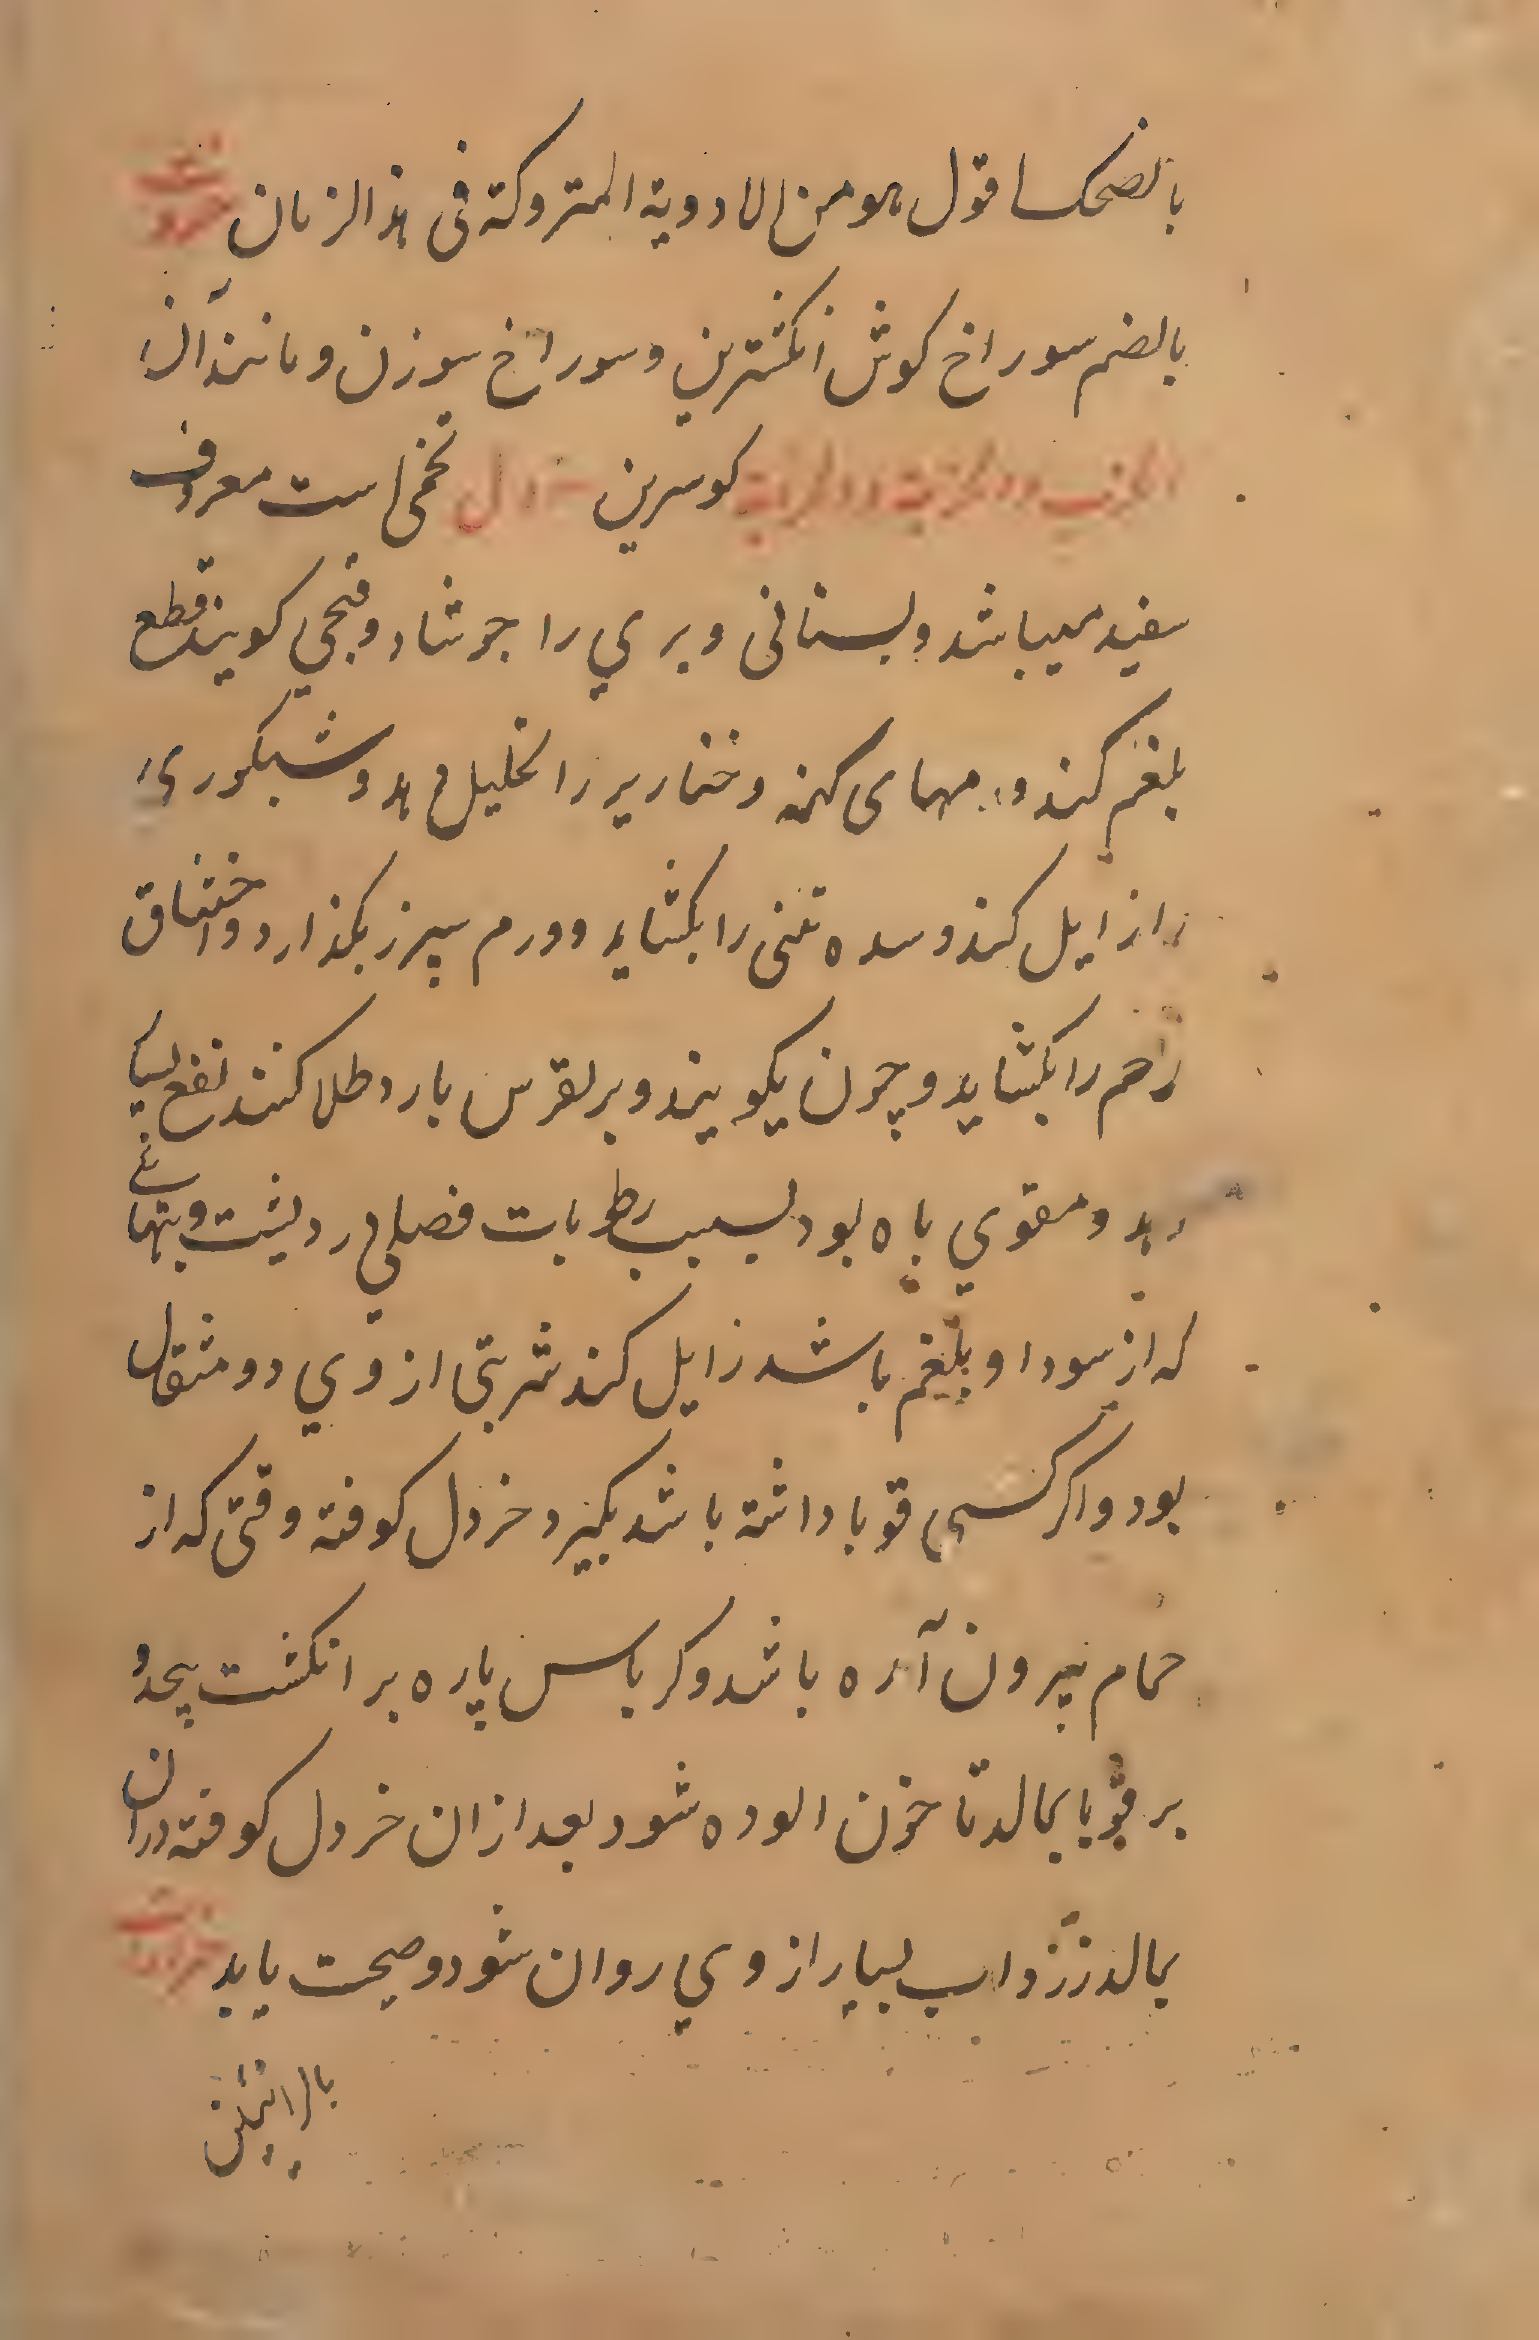 بالضحک اقول هو من الادویة المتروکة فی هذ الزمان
بالضم سوراخ کوش انکشترین و سوراخ سوزن و مانند آن
کوسرین خردل تخمی است معروف
سفید میباشد و بستانی و بری را جوشاد و قبحی کویند قطع
بلغم کند و رمهای کهنه و خنازیر را تحلیل دهد و شبکوری
را زایل کند و سده تنی را بکشاید و ورم سپرز بکذارد و اختناق
رحم را بکشاید و چون بکویند و بر نقرس بارد طلا کنند نفع بسیا
ر دهد و مقوی باه بود بسبب رطوبات فصلی در ویشت و تبهای
که از سودا و بلغم باشد زایل کند شربتی از وی دو مثقال
بود و اکر کسی قوبا داشته باشد بکیرد خردل کوفته وقتی که از
حمام بیرون آمده باشد و کرباس پاره بر انکشت پیچد و
بر قوبا بمالد تا خون الوده شود بعد ازان خردل کوفته دران
بمالد زرداب بسیار از وی روان شود و صحت یابد